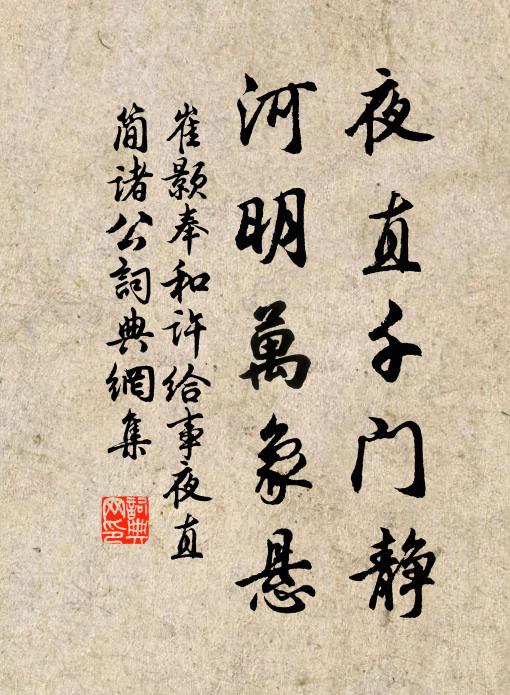 夜直千门静
河明萬象悬
崔颢奉和许给事夜直
简诸公詞典網集
詞典网印